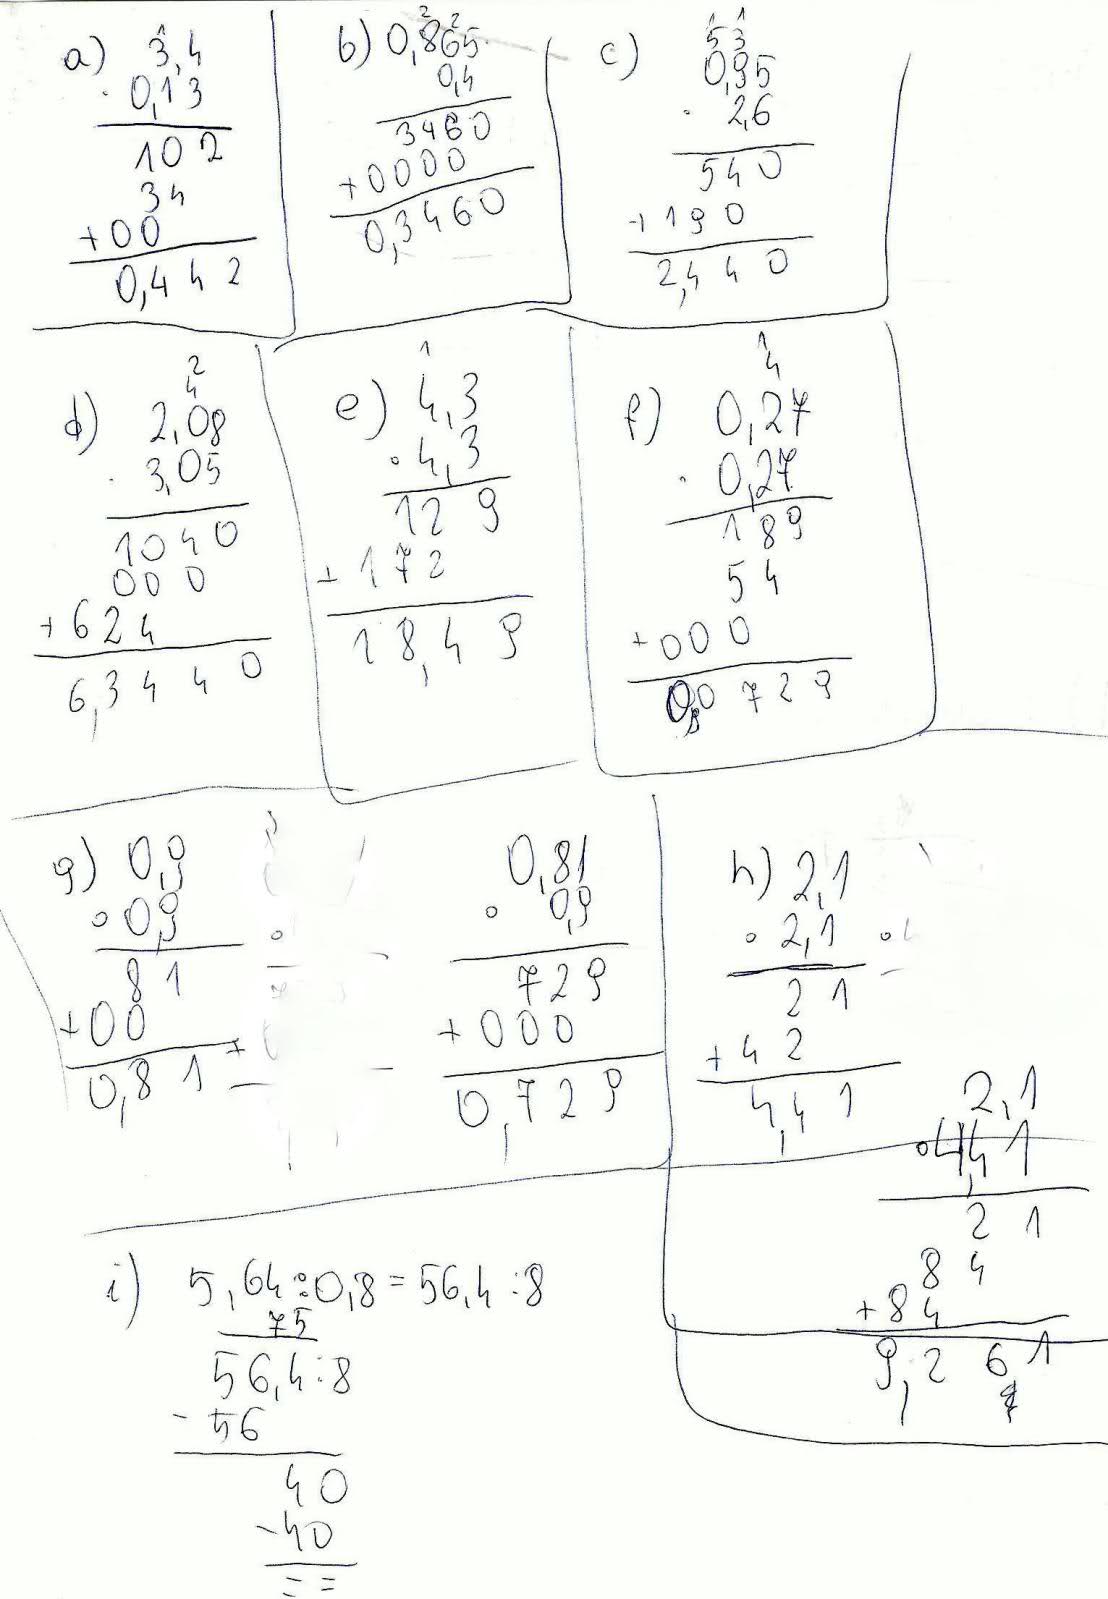 a) 3,4
1
· 0,13
102
34
+00
0,442
b) 0,865
2 2
0,4
3460
+0000
0,3460
c) 0,95
1 1
5 3
· 2,6
540
+190
2,440
d) 2,08
2
4
· 3,05
1040
000
+624
6,3440
e) 4,3
1
· 4,3
129
+172
18,49
f) 0,27
1
4
· 0,27
189
54
+000
0,0729
g) 0,9
· 0,9
81
+00
0,81
0,81
· 0,9
729
+000
0,729
h) 2,1
· 2,1
21
+42
4,41
2,1
· 4,41
21
84
+84
9,261
i) 5,64:0,8=56,4:8
75
56,4:8
-56
40
-40
= =